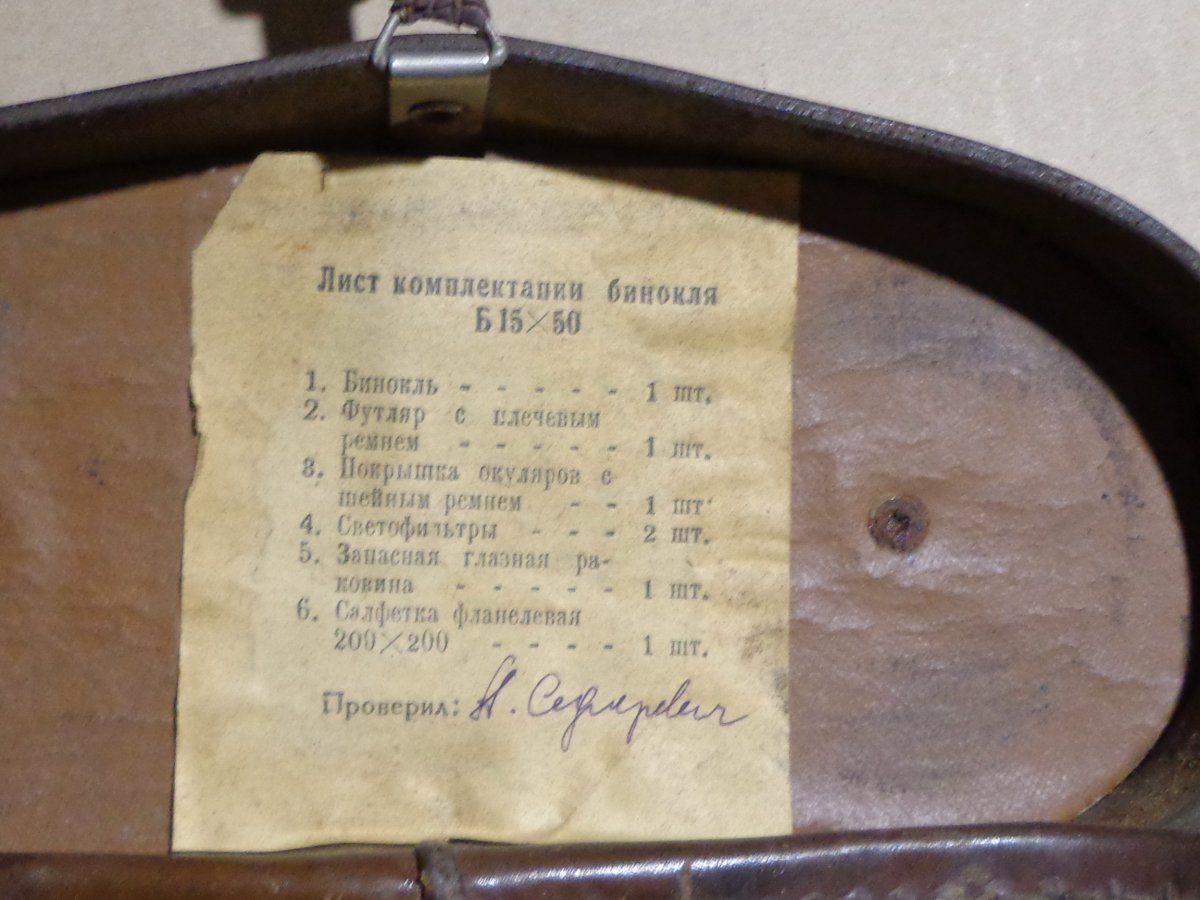 Лист комплектации бинокля
Б 15×50
1. Бинокль - - - - - 1 шт.
2. Футляр с плечевым
ремнем - - - - - 1 шт.
3. Покрышка окуляров с
шейным ремнем - - 1 шт.
4. Светофильтры - - - 2 шт.
5. Запасная глазная ра-
ковина - - - - - 1 шт.
6. Салфетка фланелевая
200×200 - - - - 1 шт.
Проверил: